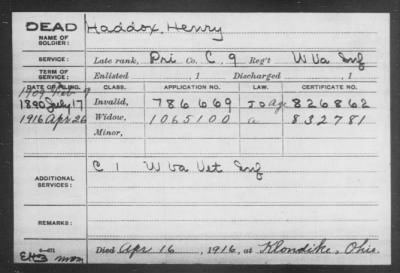 DEAD
NAME OF SOLDIER: Haddox, Henry
SERVICE: Late rank, Pri Co. C, 9 Reg't W Va Inf
TERM OF SERVICE: Enlisted , 1 Discharged , 1
DATE OF FILING. CLASS. APPLICATION NO. LAW. CERTIFICATE NO.
1909 Feb 9
1890 July 17 Invalid, 786669 J O Age 826862
1916 Apr 26 Widow, 1065100 a 832781
Minor,
ADDITIONAL SERVICES: C 1 W Va Vet Inf
REMARKS:
Died Apr 16, 1916, at Klondike, Ohio.